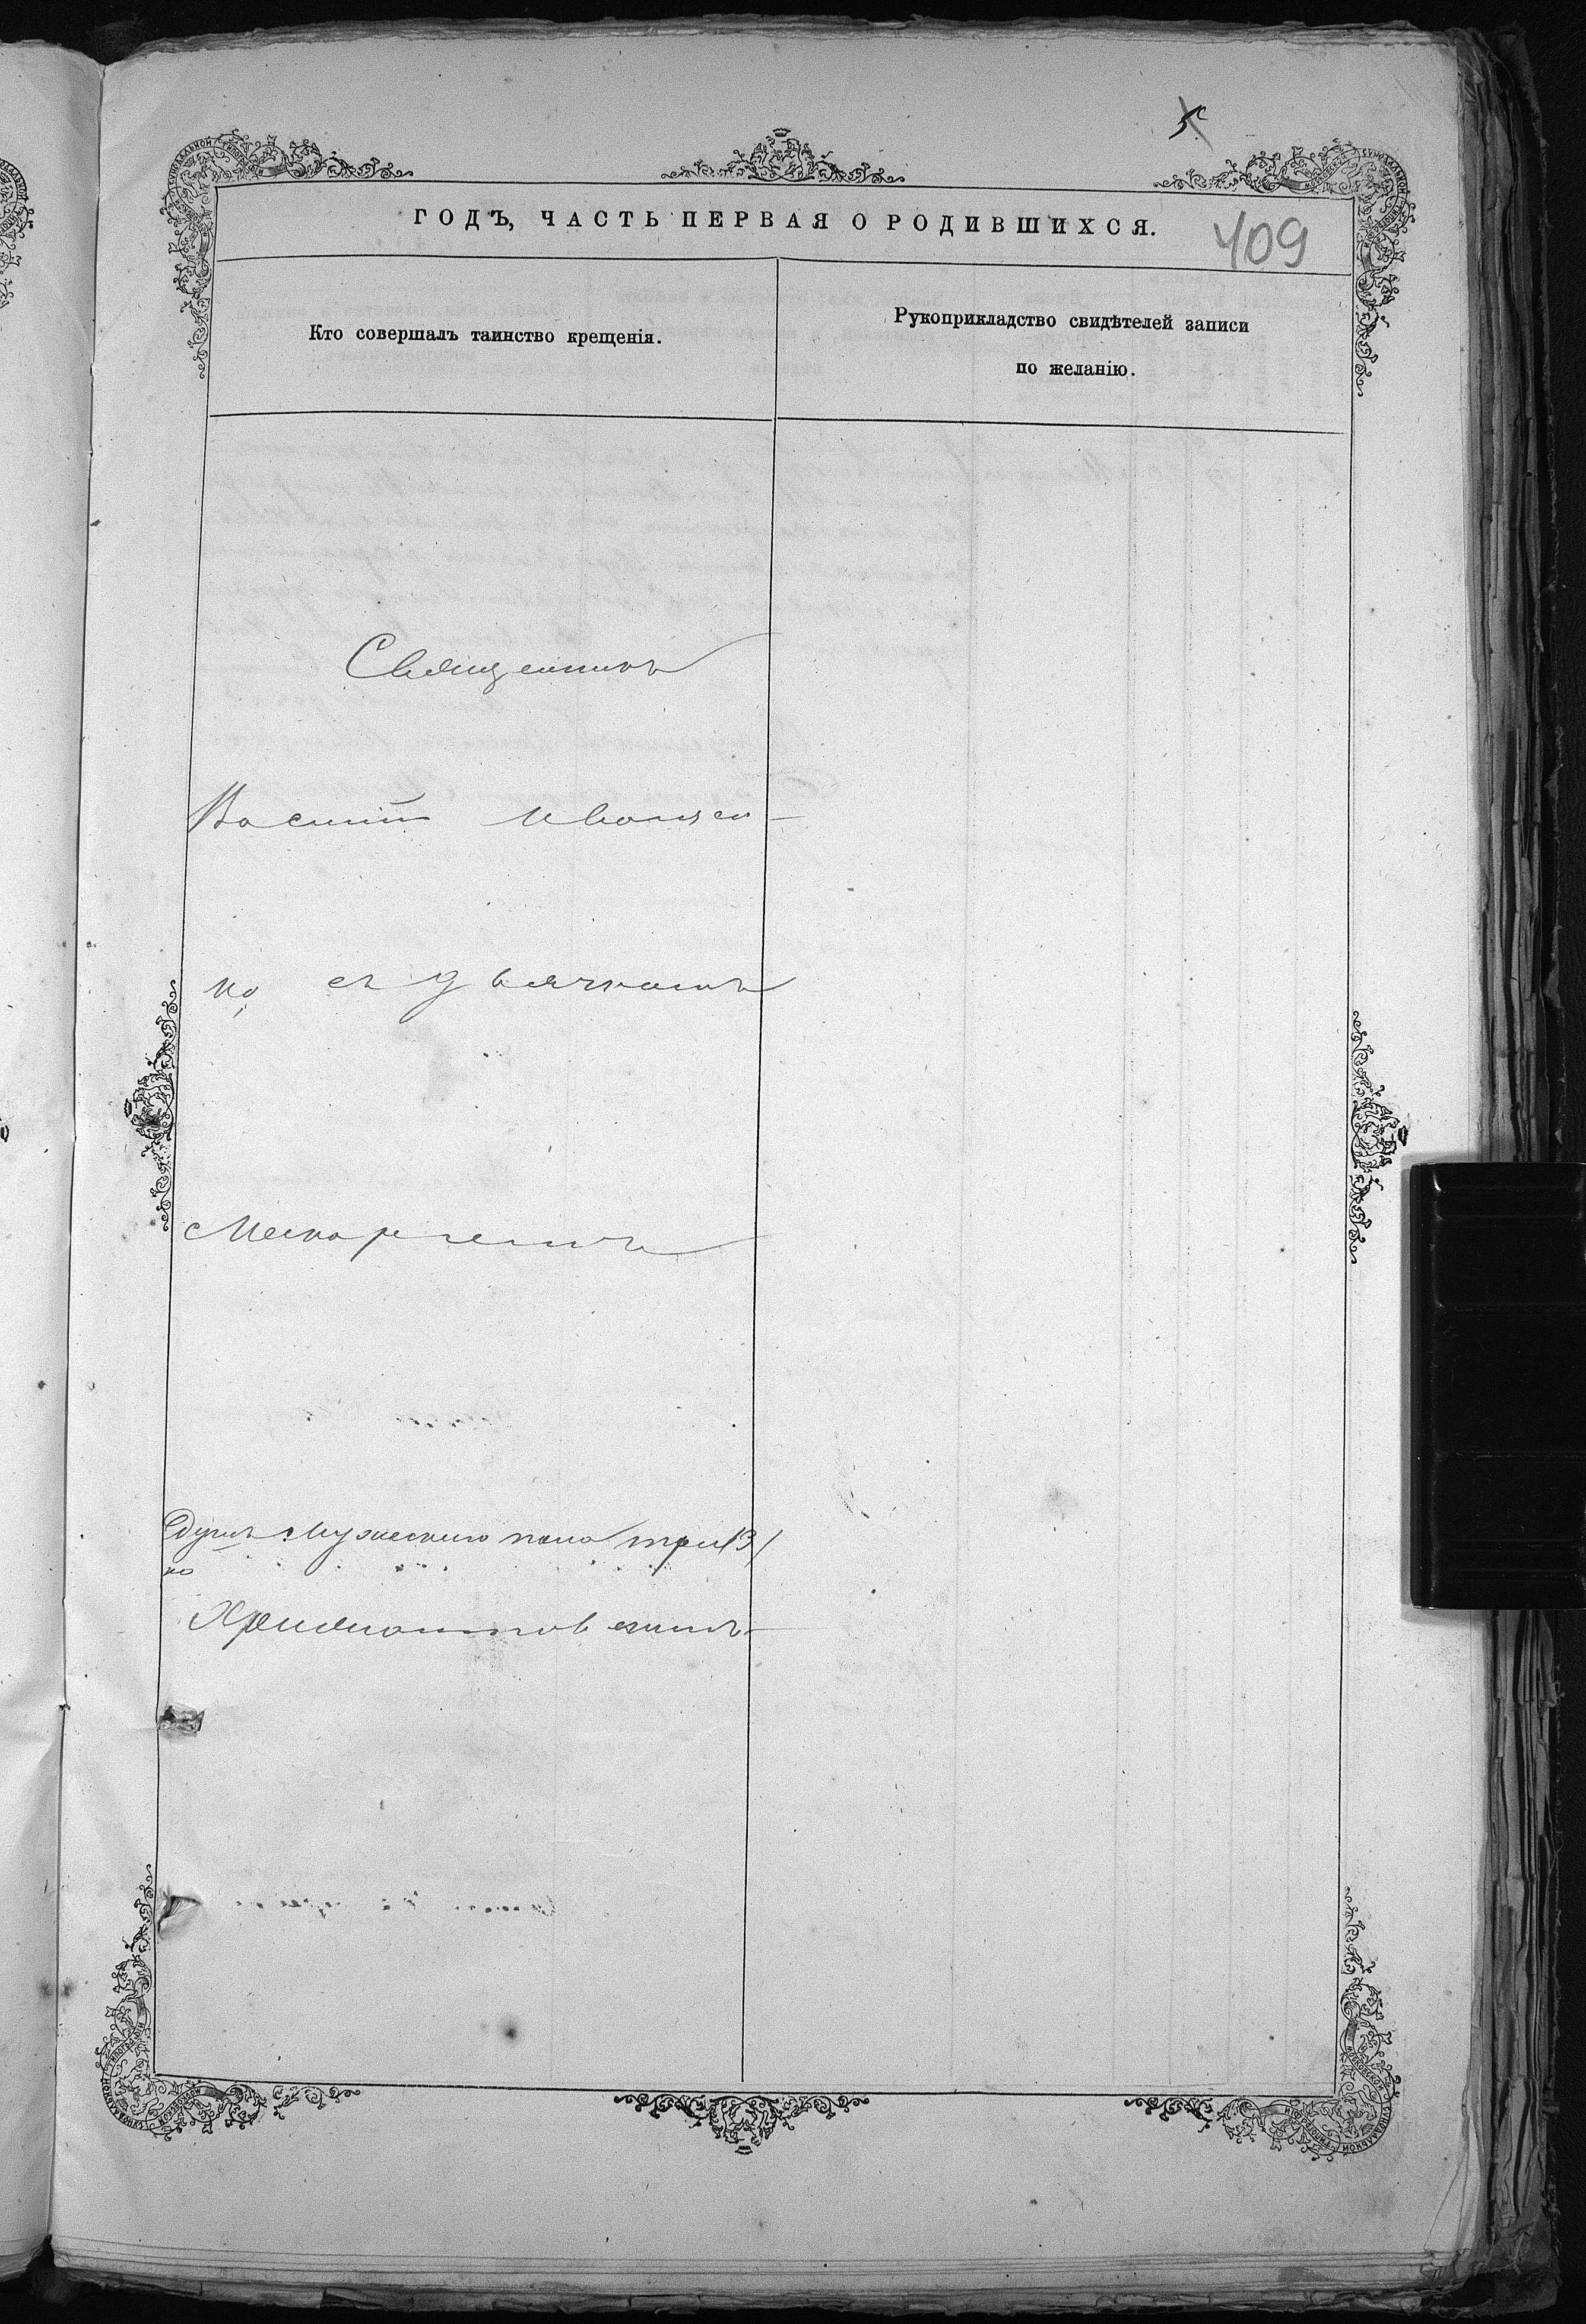 5
ГОДЪ, ЧАСТЬ ПЕРВАЯ О РОДИВШИХСЯ.
409
Кто совершалъ таинство крещенія.
Рукоприкладство свидѣтелей записи
по желанію.
Священникъ
Василій Иванен-
ко, съ дьячкомъ
Макаріемъ
Душъ мужескаго пола три /3/